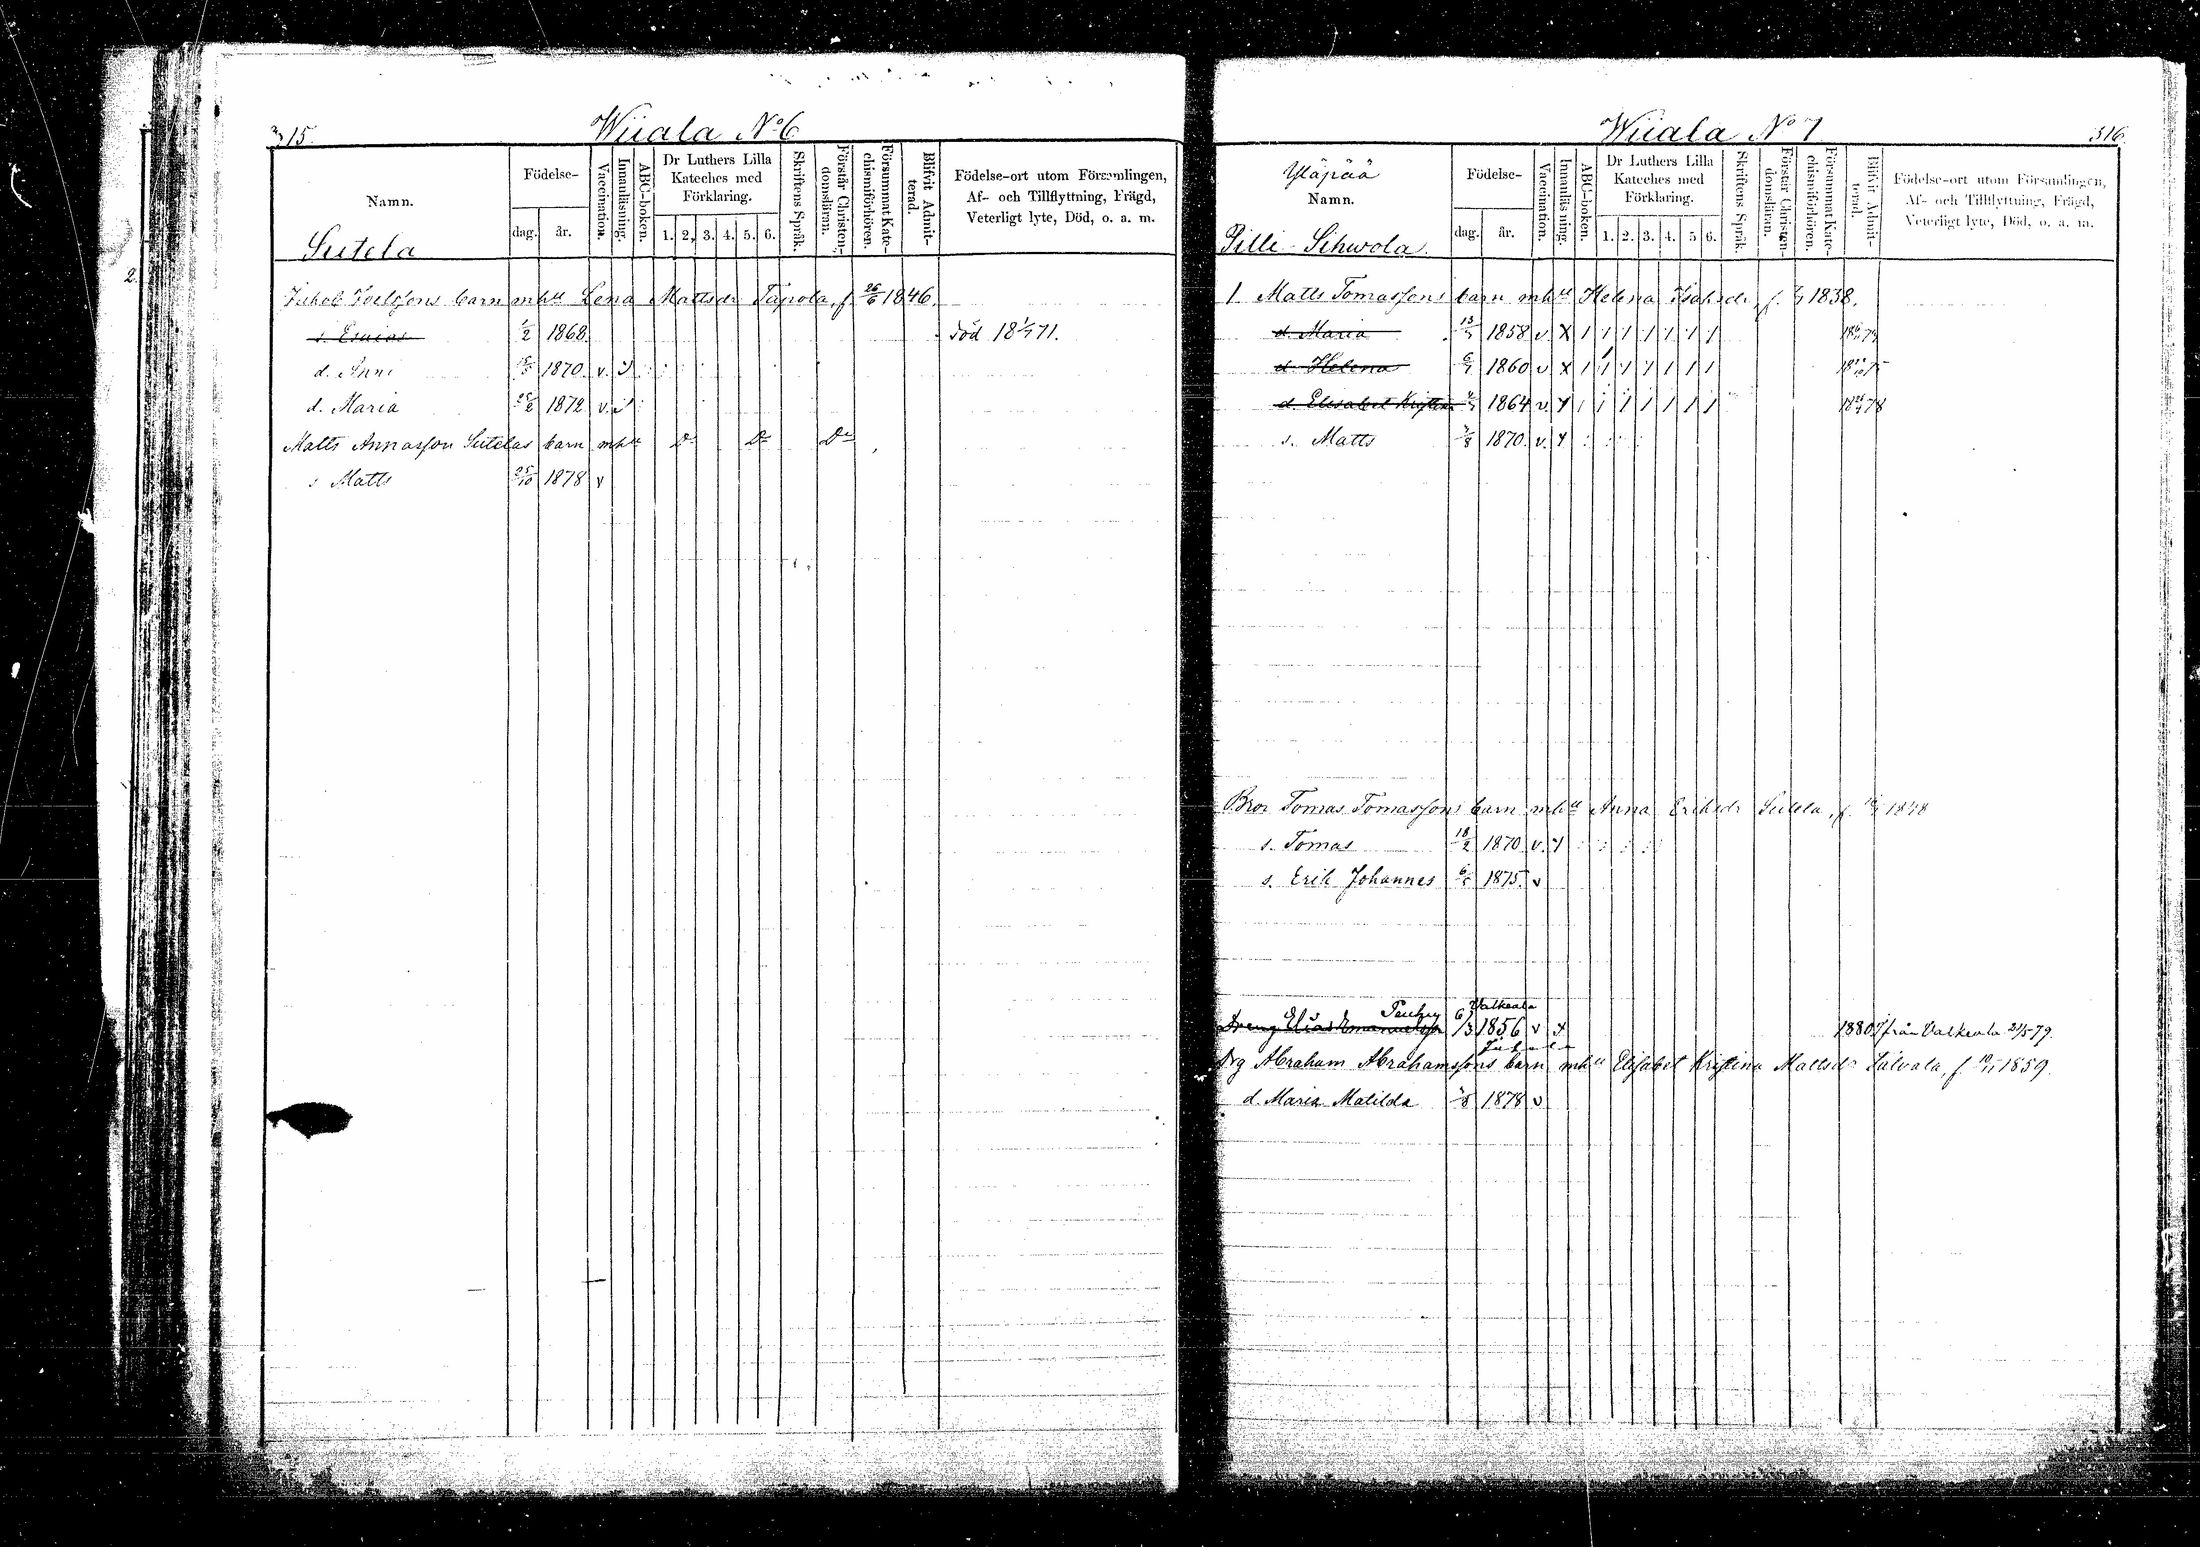 315.
Wiiala No 6
Namn.
Sutela
Födelse-
dag.
år.
Vaccination.
Innanläsning.
ABC-boken.
Dr Luthers Lilla
Kateches med
Förklaring.
1. 2. 3. 4. 5. 6.
Skriftens Språk.
Förstår Christen-
domsläran.
Försummat Kate-
chismiförhören.
Blifvit Admit-
terad.
Födelse-ort utom Församlingen,
Af- och Tillflyttning, Frägd,
Veterligt lyte, Död, o. a. m.
2.
barn mhu Lena Mattsdr Tapola, f. 26/6 1846.
s. Esaias 1/2 1868. död 18 1/7 71.
d. Anni 1870. v.
d. Maria 25/2 1872. v.
Matts Annasson Sutelas barn mhu Do Do Do
s Matts 25/10 1878 v
Wiiala No 7
316
Yläpää
Namn.
Pilli-Sihvola.
Födelse-
dag.
år.
Vaccination.
Innanläsning.
ABC-boken.
Dr Luthers Lilla
Kateches med
Förklaring.
1. 2. 3. 4. 5 6.
Skriftens Språk.
Förstår Christen-
domsläran.
Försummat Kate-
chismiförhören.
Blifvit Admit-
terad.
Födelse-ort utom Församlingen,
Af- och Tillflyttning, Frägd,
Veterligt lyte, Död, o. a. m.
1 Matts Tomassons barn mhu Helena Isaksdr, f. 1838.
d. Maria 1858 v X / / / / / / /
d. Helena 1860 v X / / / / / / /
d. Elisabet Kristina 1864 v. / / / / / / /
s. Matts 1870. v.
Bror Tomas Tomassons barn mhu Anna Eriksdr Sutela, f. 1848
s. Tomas 18/2 1870 v.
s. Erik Johannes 1875. v
Valkeala
Dreng Elias Emanuelsson 6/3 1856 v 1880 från Valkeala 21/5 79.
Drg Abraham Abrahamssons barn mhu Elisabet Kristina Mattsdr f. 1859.
d. Maria Matilda 1878 v